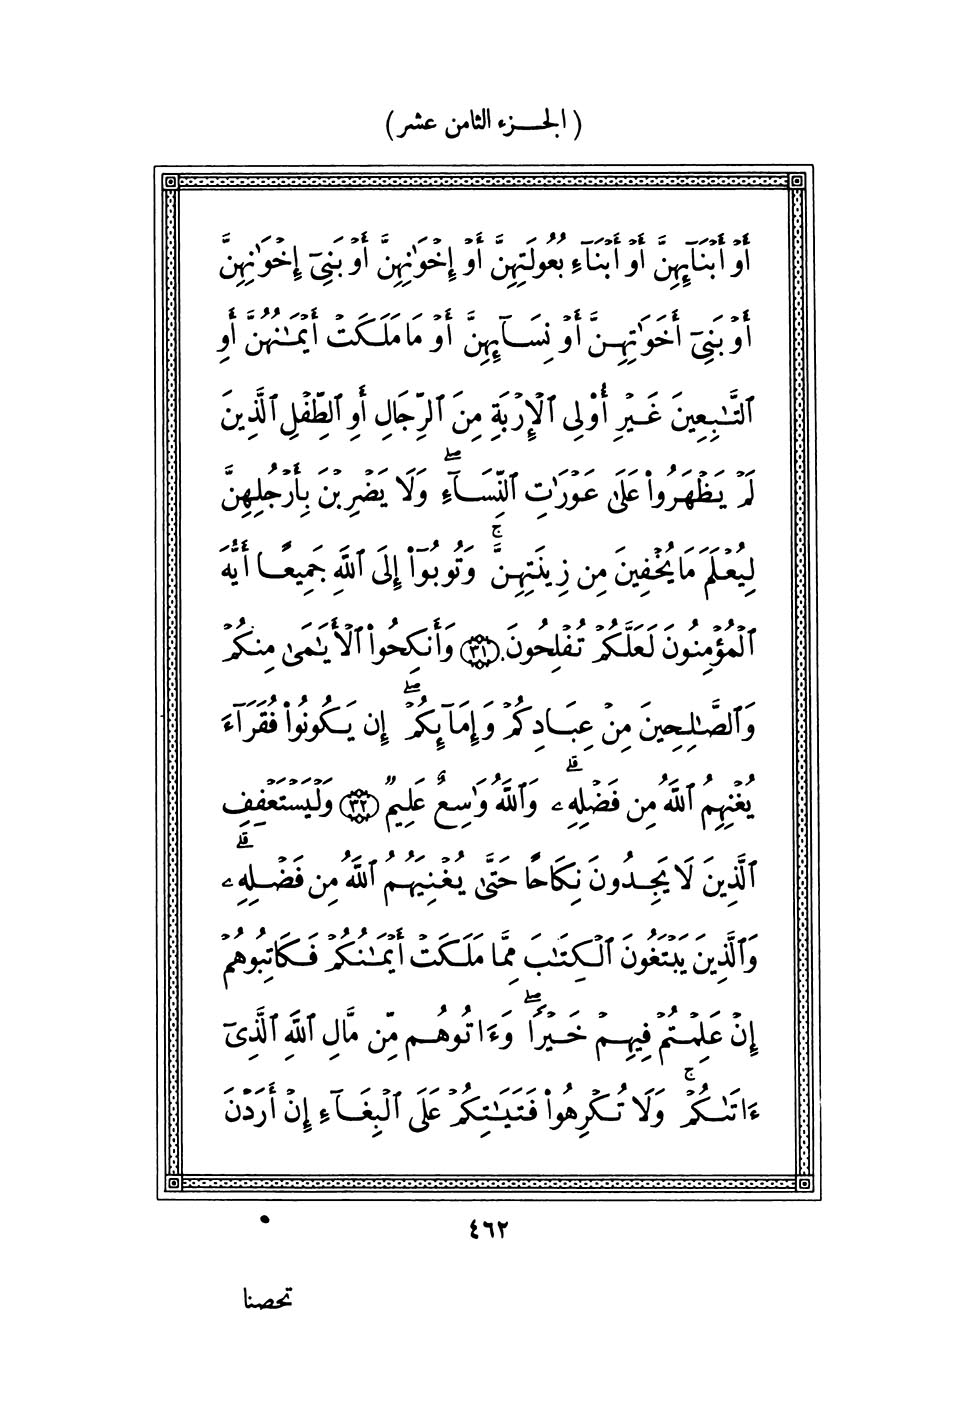 ( الجزء الثامن عشر )
أَوْ أَبْنَآئِهِنَّ أَوْ أَبْنَآءِ بُعُولَتِهِنَّ أَوْ إِخْوَٰنِهِنَّ أَوْ بَنِىٓ إِخْوَٰنِهِنَّ
أَوْ بَنِىٓ أَخَوَٰتِهِنَّ أَوْ نِسَآئِهِنَّ أَوْ مَا مَلَكَتْ أَيْمَٰنُهُنَّ أَوِ
ٱلتَّٰبِعِينَ غَيْرِ أُوْلِى ٱلْإِرْبَةِ مِنَ ٱلرِّجَالِ أَوِ ٱلطِّفْلِ ٱلَّذِينَ
لَمْ يَظْهَرُواْ عَلَىٰ عَوْرَٰتِ ٱلنِّسَآءِۖ وَلَا يَضْرِبْنَ بِأَرْجُلِهِنَّ
لِيُعْلَمَ مَا يُخْفِينَ مِن زِينَتِهِنَّۚ وَتُوبُوٓاْ إِلَى ٱللَّهِ جَمِيعًا أَيُّهَ
ٱلْمُؤْمِنُونَ لَعَلَّكُمْ تُفْلِحُونَ ٣١ وَأَنكِحُواْ ٱلْأَيَٰمَىٰ مِنكُمْ
وَٱلصَّٰلِحِينَ مِنْ عِبَادِكُمْ وَإِمَآئِكُمْۖ إِن يَكُونُواْ فُقَرَآءَ
يُغْنِهِمُ ٱللَّهُ مِن فَضْلِهِۦۗ وَٱللَّهُ وَٰسِعٌ عَلِيمٌ ٣٢ وَلْيَسْتَعْفِفِ
ٱلَّذِينَ لَا يَجِدُونَ نِكَاحًا حَتَّىٰ يُغْنِيَهُمُ ٱللَّهُ مِن فَضْلِهِۦۗ
وَٱلَّذِينَ يَبْتَغُونَ ٱلْكِتَٰبَ مِمَّا مَلَكَتْ أَيْمَٰنُكُمْ فَكَاتِبُوهُمْ
إِنْ عَلِمْتُمْ فِيهِمْ خَيْرًاۖ وَءَاتُوهُم مِّن مَّالِ ٱللَّهِ ٱلَّذِىٓ
ءَاتَىٰكُمْۚ وَلَا تُكْرِهُواْ فَتَيَٰتِكُمْ عَلَى ٱلْبِغَآءِ إِنْ أَرَدْنَ
٤٦٢
تحصنا